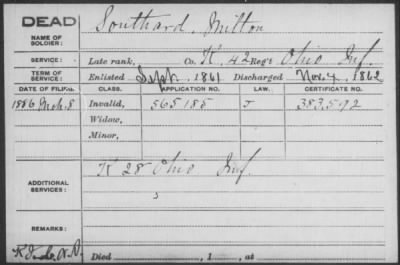 DEAD Southard, Milton
NAME OF SOLDIER:
SERVICE: Late rank, Co. K, 42 Reg't Ohio Inf.
TERM OF SERVICE: Enlisted Sept. 1861 Discharged Nov. 4, 1862
DATE OF FILING. CLASS. APPLICATION NO. LAW. CERTIFICATE NO.
1886 Mch. 8 Invalid, 565185 J 383,592
Widow,
Minor,
ADDITIONAL SERVICES: K 28 Ohio Inf.
REMARKS:
Died , 1 , at